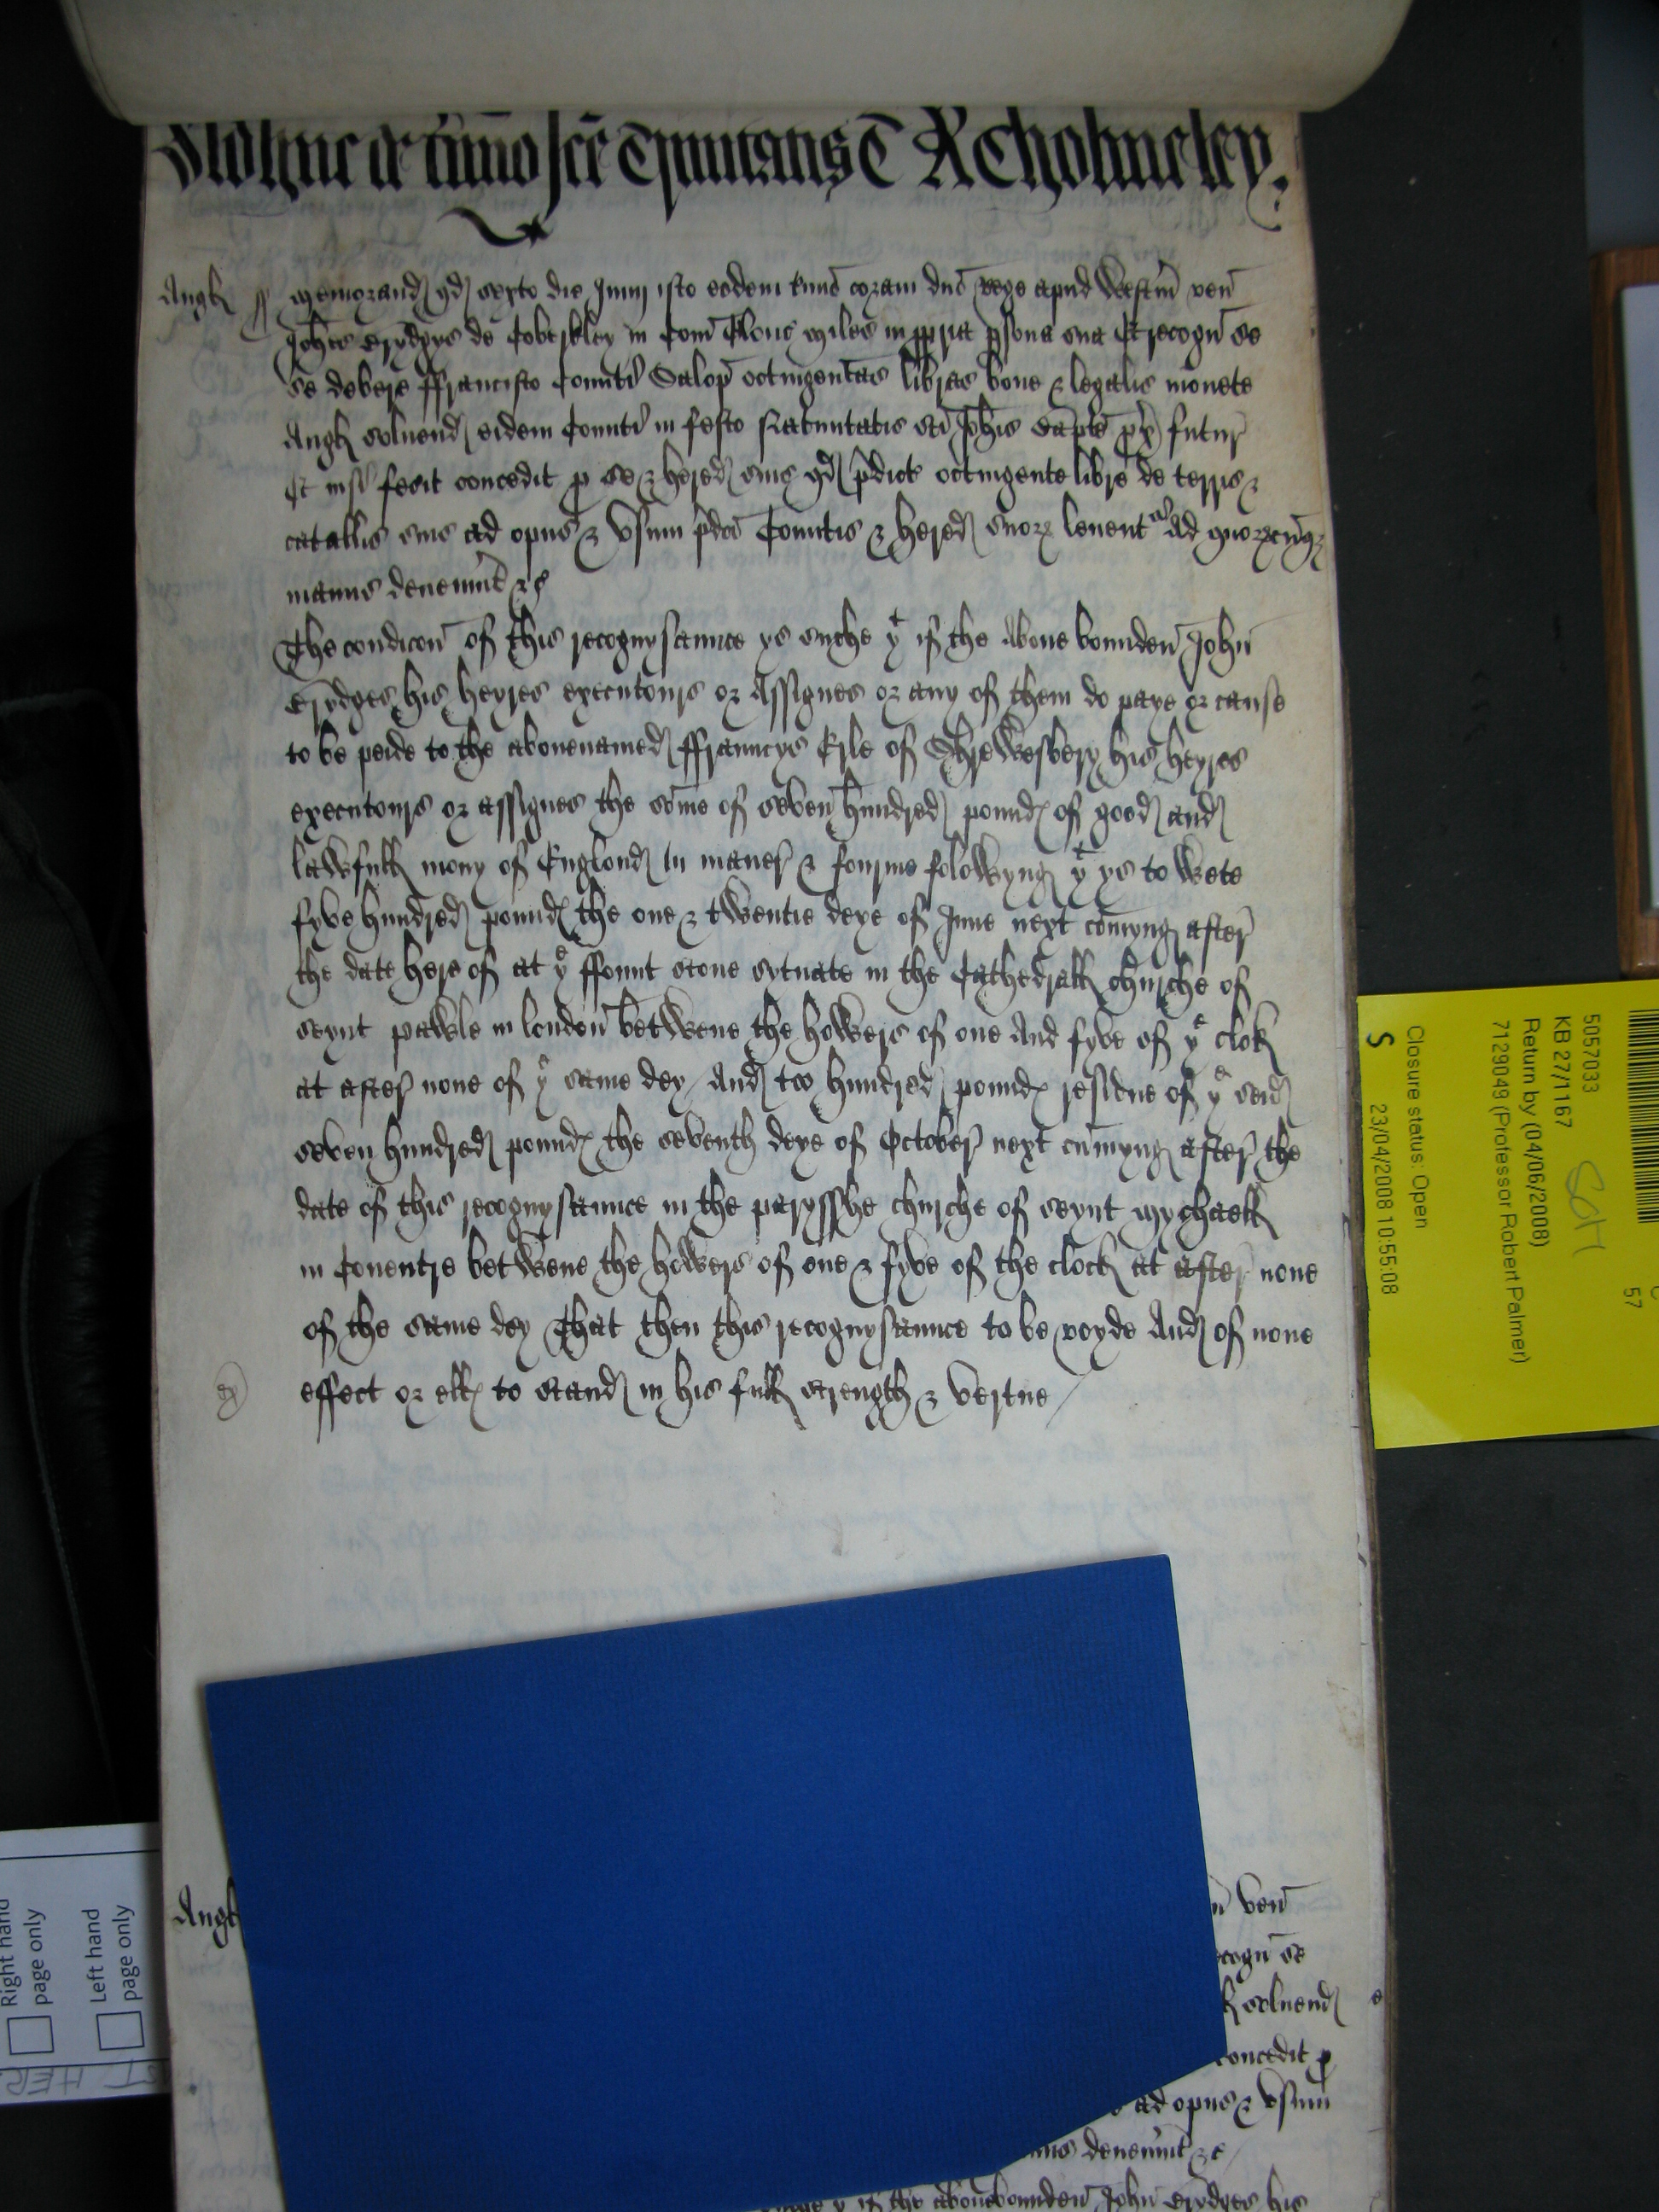 Adhuc de t'mino scē Trinitatis ⁊ R Cholmeley.
Angł ss Memorand qd sexto die Junij isto eodem t'mīo coram dnō rege apud Westm̄ ven̄
Johēs Brydgys de Coberkley in Com̄ Glouc miles in ppria psona sua Et recogn̄ se
se debere ffrancisco Comiti Salop̄ octingentas libras bone & legalis monete
Angł soluend eidem Comiti in festo Natiuitatis sc̄i Joh̄is Bapte px̄ futur
Et nisi fecit concedit p se & hered suis qd p̄dict octingente libre de terris &
catallis suis ad opus & vsum p̄dci Comitis & hered suoꝝ leuentʳ Ad quoꝝcūqꝫ
manus deuen'int &c
The condicon̄ of this recognysaunce ys suche yᵗ if the Aboue bounden John
Brydges his heyres executours or Assignes or any of them do paye or cause
to be peide to the abouenamed ffrauncys Erle of Shrewesbery his heyres
executours or assignes the sōme of seven hundred pound of good and
lawfull mony of Englond in maner & fourme folowyng yᵗ ys to wete
fyve hundred pound the one & twentie deye of June next comyng after
the date here of at yᵉ ffount stone sytuate in the Cathedrall churche of
seynt pawle in london betwene the howers of one And fyve of yᵉ clok
at after none of yᵉ same dey / And too hundred pound residue of yᵉ seid
seven hundred pound the seventh deye of October next cumyng after the
date of this recognysaunce in the paryssℏe churche of seynt mychaell
in Couentre betwene the howers of one & fyve of the clock at after none
of the same dey That then this recognysaunce to be voyde And of none
effect or elł to stand in his full strength & vertue /
Angł
ven̄
recogn̄ se
soluend
concedit p
ad opus & vsum
deuen'int &c /
yᵗ if the abouebounden John Brydges his
5057033
KB 27/1167
SGH
Return by (04/06/2008)
7129049 (Professor Robert Palmer)
57
Closure status: Open
S
23/04/2008 10:55:08
Right hand
page only
Left hand
page only
HER